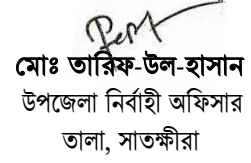 মোঃ তারিফ-উল-হাসান
উপজেলা নির্বাহী অফিসার
তালা, সাতক্ষীরা